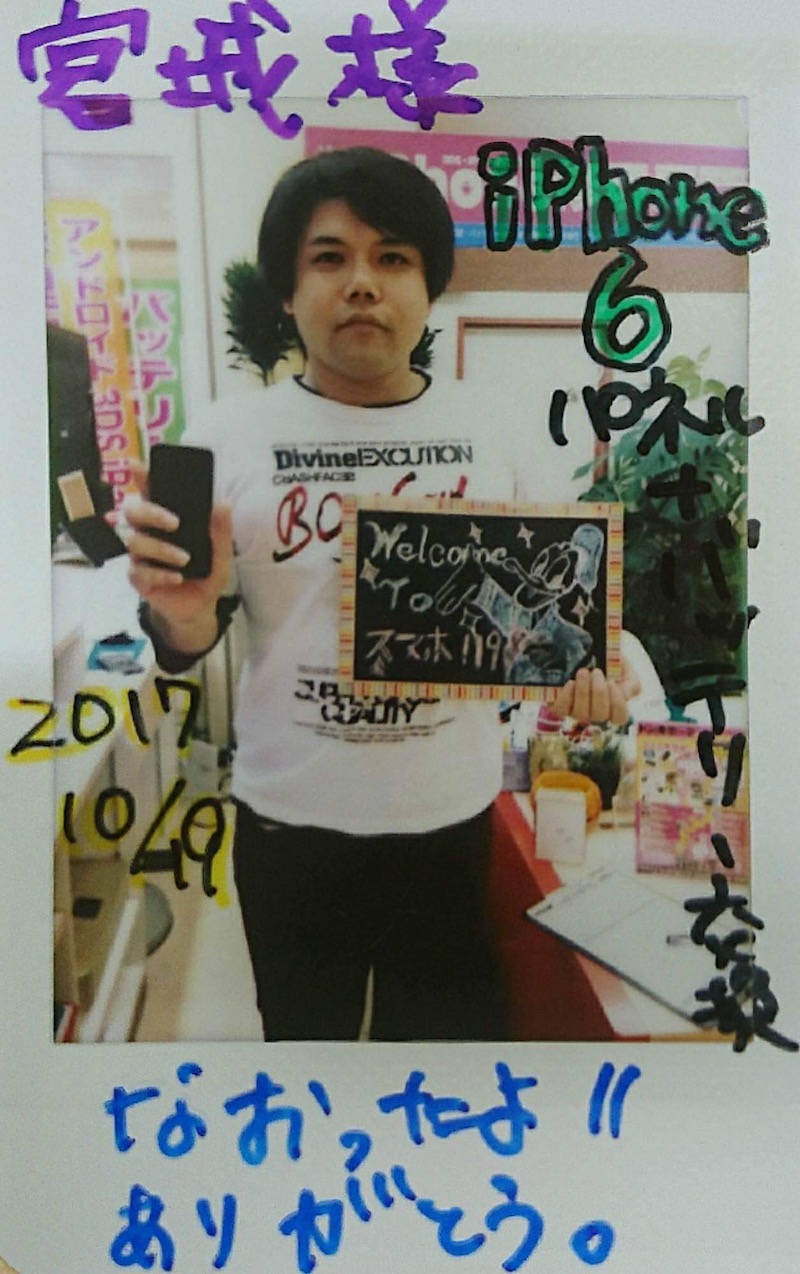 宮城様
iPhone
6
パネル
+バッテリー交換
アンドロイド 3DS iPa
バッテリ
DivineEXCUTION
CRASHFACER
Welcome
To
スマホ119
2017
10/19
なおったよ!!
ありがとう。